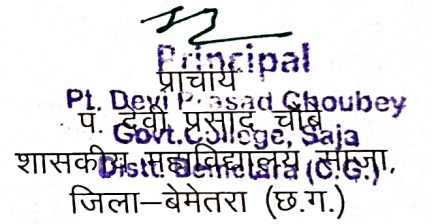 Principal
प्राचार्य
Pt. Devi Prasad Choubey
पं. देवी प्रसाद चौबे
Govt. College, Saja
शासकीय महाविद्यालय साजा,
Distt. Bemetara (C.G.)
जिला–बेमेतरा (छ.ग.)